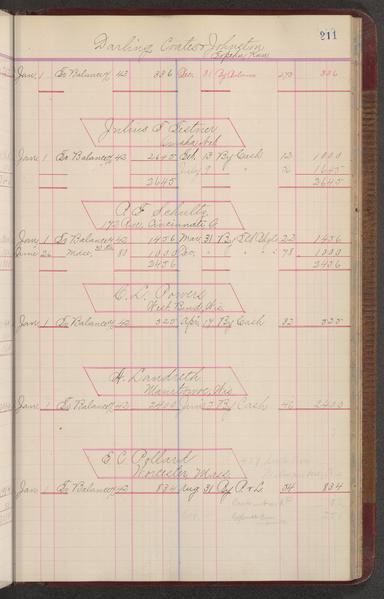 211
Darling Coates & Johnston
Topeka Kan
Jan 1 To Balance 43 336 Dec 31 By Balance 270 336
Julius F Festner
Omaha Neb
Jan 1 To Balance 42 2645 Feb 13 By Cash 12 1000
July 9 " " 1645
2645 2645
A. E. Schultz
Race Cincinnati O
Jan 1 To Balance 42 1456 Mar 31 By 23 1456
June 26 Mdse 81 1000 Do. " " 78 1000
2456 2456
C. L. Powers
West Bend, Wis
Jan 1 To Balance 42 325 Apr 17 By Cash 32 325
H. Landreth
Manitowoc, Wis
Jan 1 To Balance 42 2400 June 3 By Cash 46 2400
E. C. Pollard
Worcester, Mass.
Jan 1 To Balance 42 834 Aug 31 By P & L 54 834